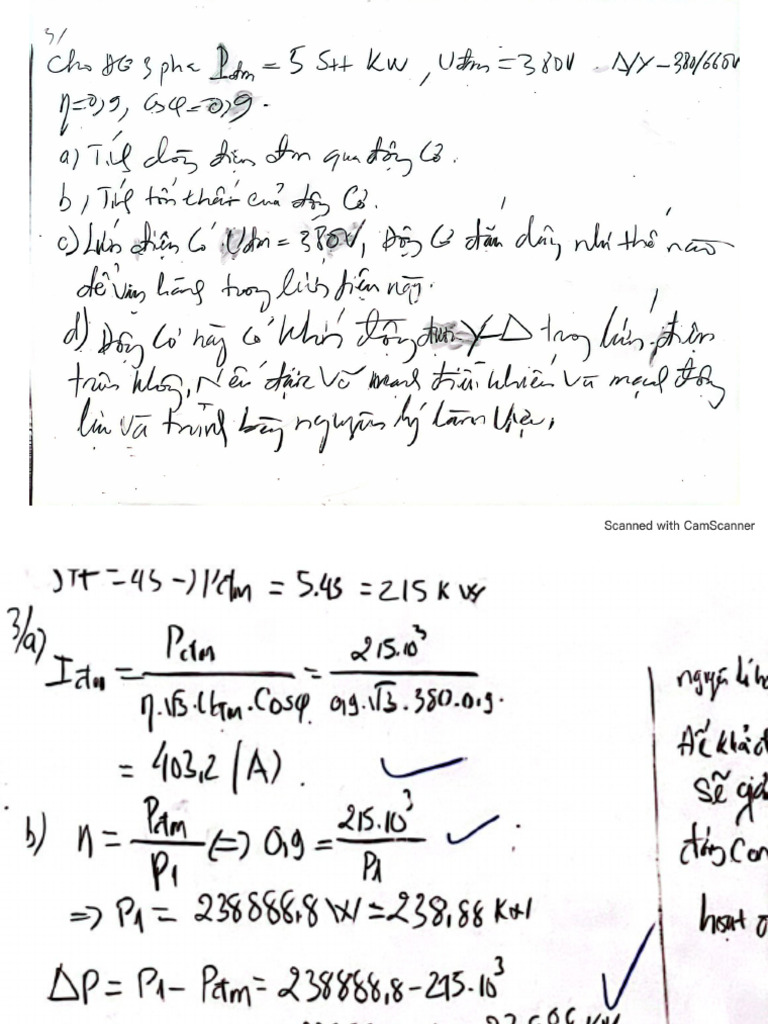 3/
Cho ĐC 3 pha Pđm = 5 Stt KW, Uđm = 380V. Δ/Y – 380/660V
η=0,9, cosφ=0,9.
a) Tính dòng điện đm qua động cơ.
b, Tính tổn thất của động cơ.
c) Lưới điện có Uđm = 380V, Động cơ đấu dây như thế nào
để vận hành trong lưới điện này.
d) Động cơ này có khởi động được Y–Δ trong lưới điện
trên không, Nếu được vẽ mạch điều khiển và mạch động
lực và trình bày nguyên lý làm việc.
Scanned with CamScanner
STT = 43 -> Pđm = 5.43 = 215 KW
3/a)
Iđm = Pđm / η.√3.Uđm.Cosφ = 215.10³ / 0,9.√3.380.0,9.
= 403,2 (A).
b) η = Pđm / P1 (=) 0,9 = 215.10³ / P1
=> P1 = 238888,8 W = 238,88 KW
ΔP = P1 – Pđm = 238888,8 – 215.10³
nguyên lí
Để khở
sẽ
động cơ
hoạt